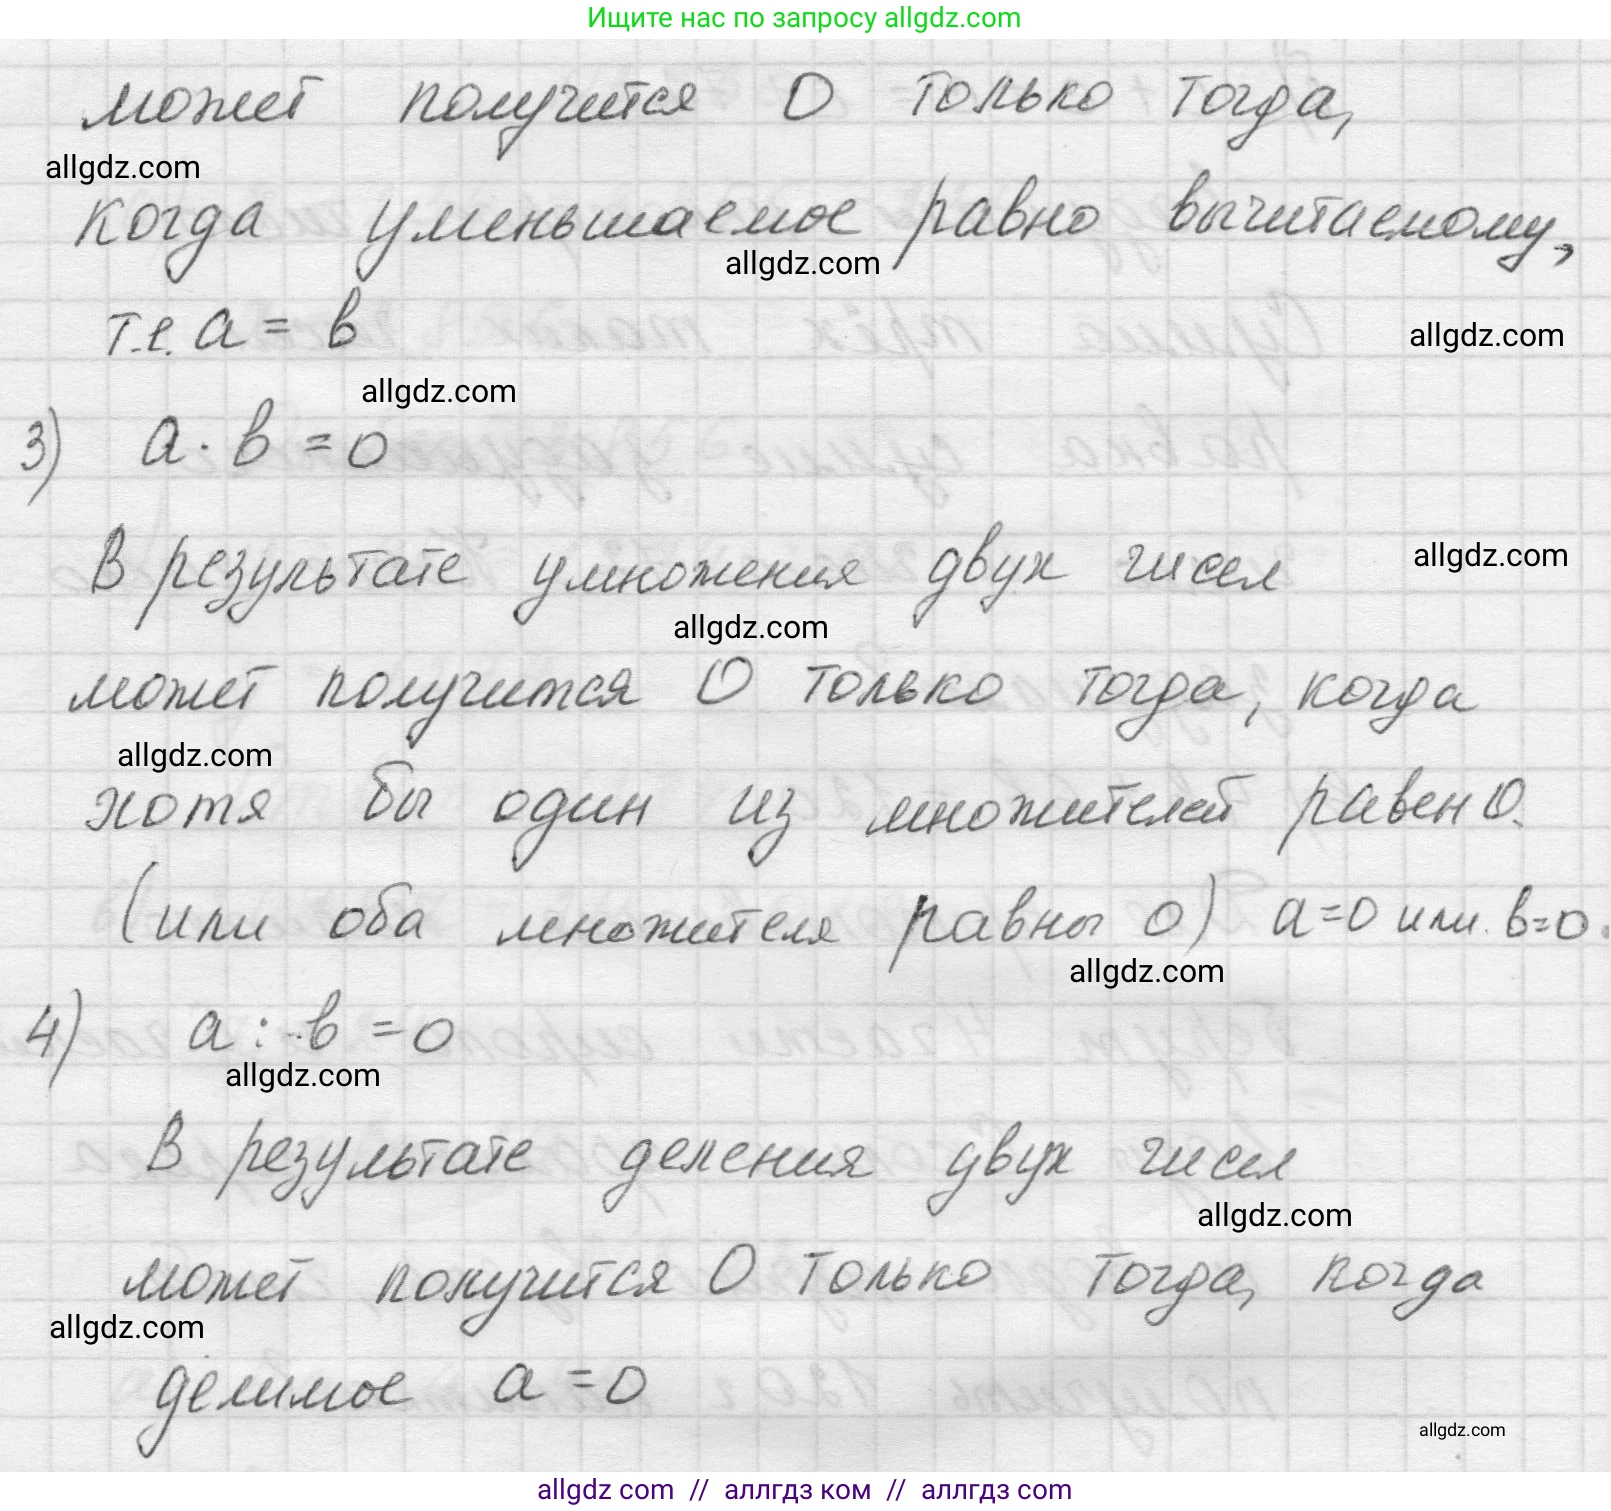 Ищите нас по запросу allgdz.com
может получится 0 только тогда,
allgdz.com
когда уменьшаемое равно вычитаемому,
allgdz.com
т.е. a = b
allgdz.com
allgdz.com
3) a · b = 0
В результате умножения двух чисел
allgdz.com
allgdz.com
может получится 0 только тогда, когда
allgdz.com
хотя бы один из множителей равен 0.
(или оба множителя равны 0) a=0 или b=0.
allgdz.com
4) a : b = 0
allgdz.com
В результате деления двух чисел
allgdz.com
может получится 0 только тогда, когда
allgdz.com
делимое a = 0
allgdz.com
allgdz com // аллгдз ком // аллгдз com